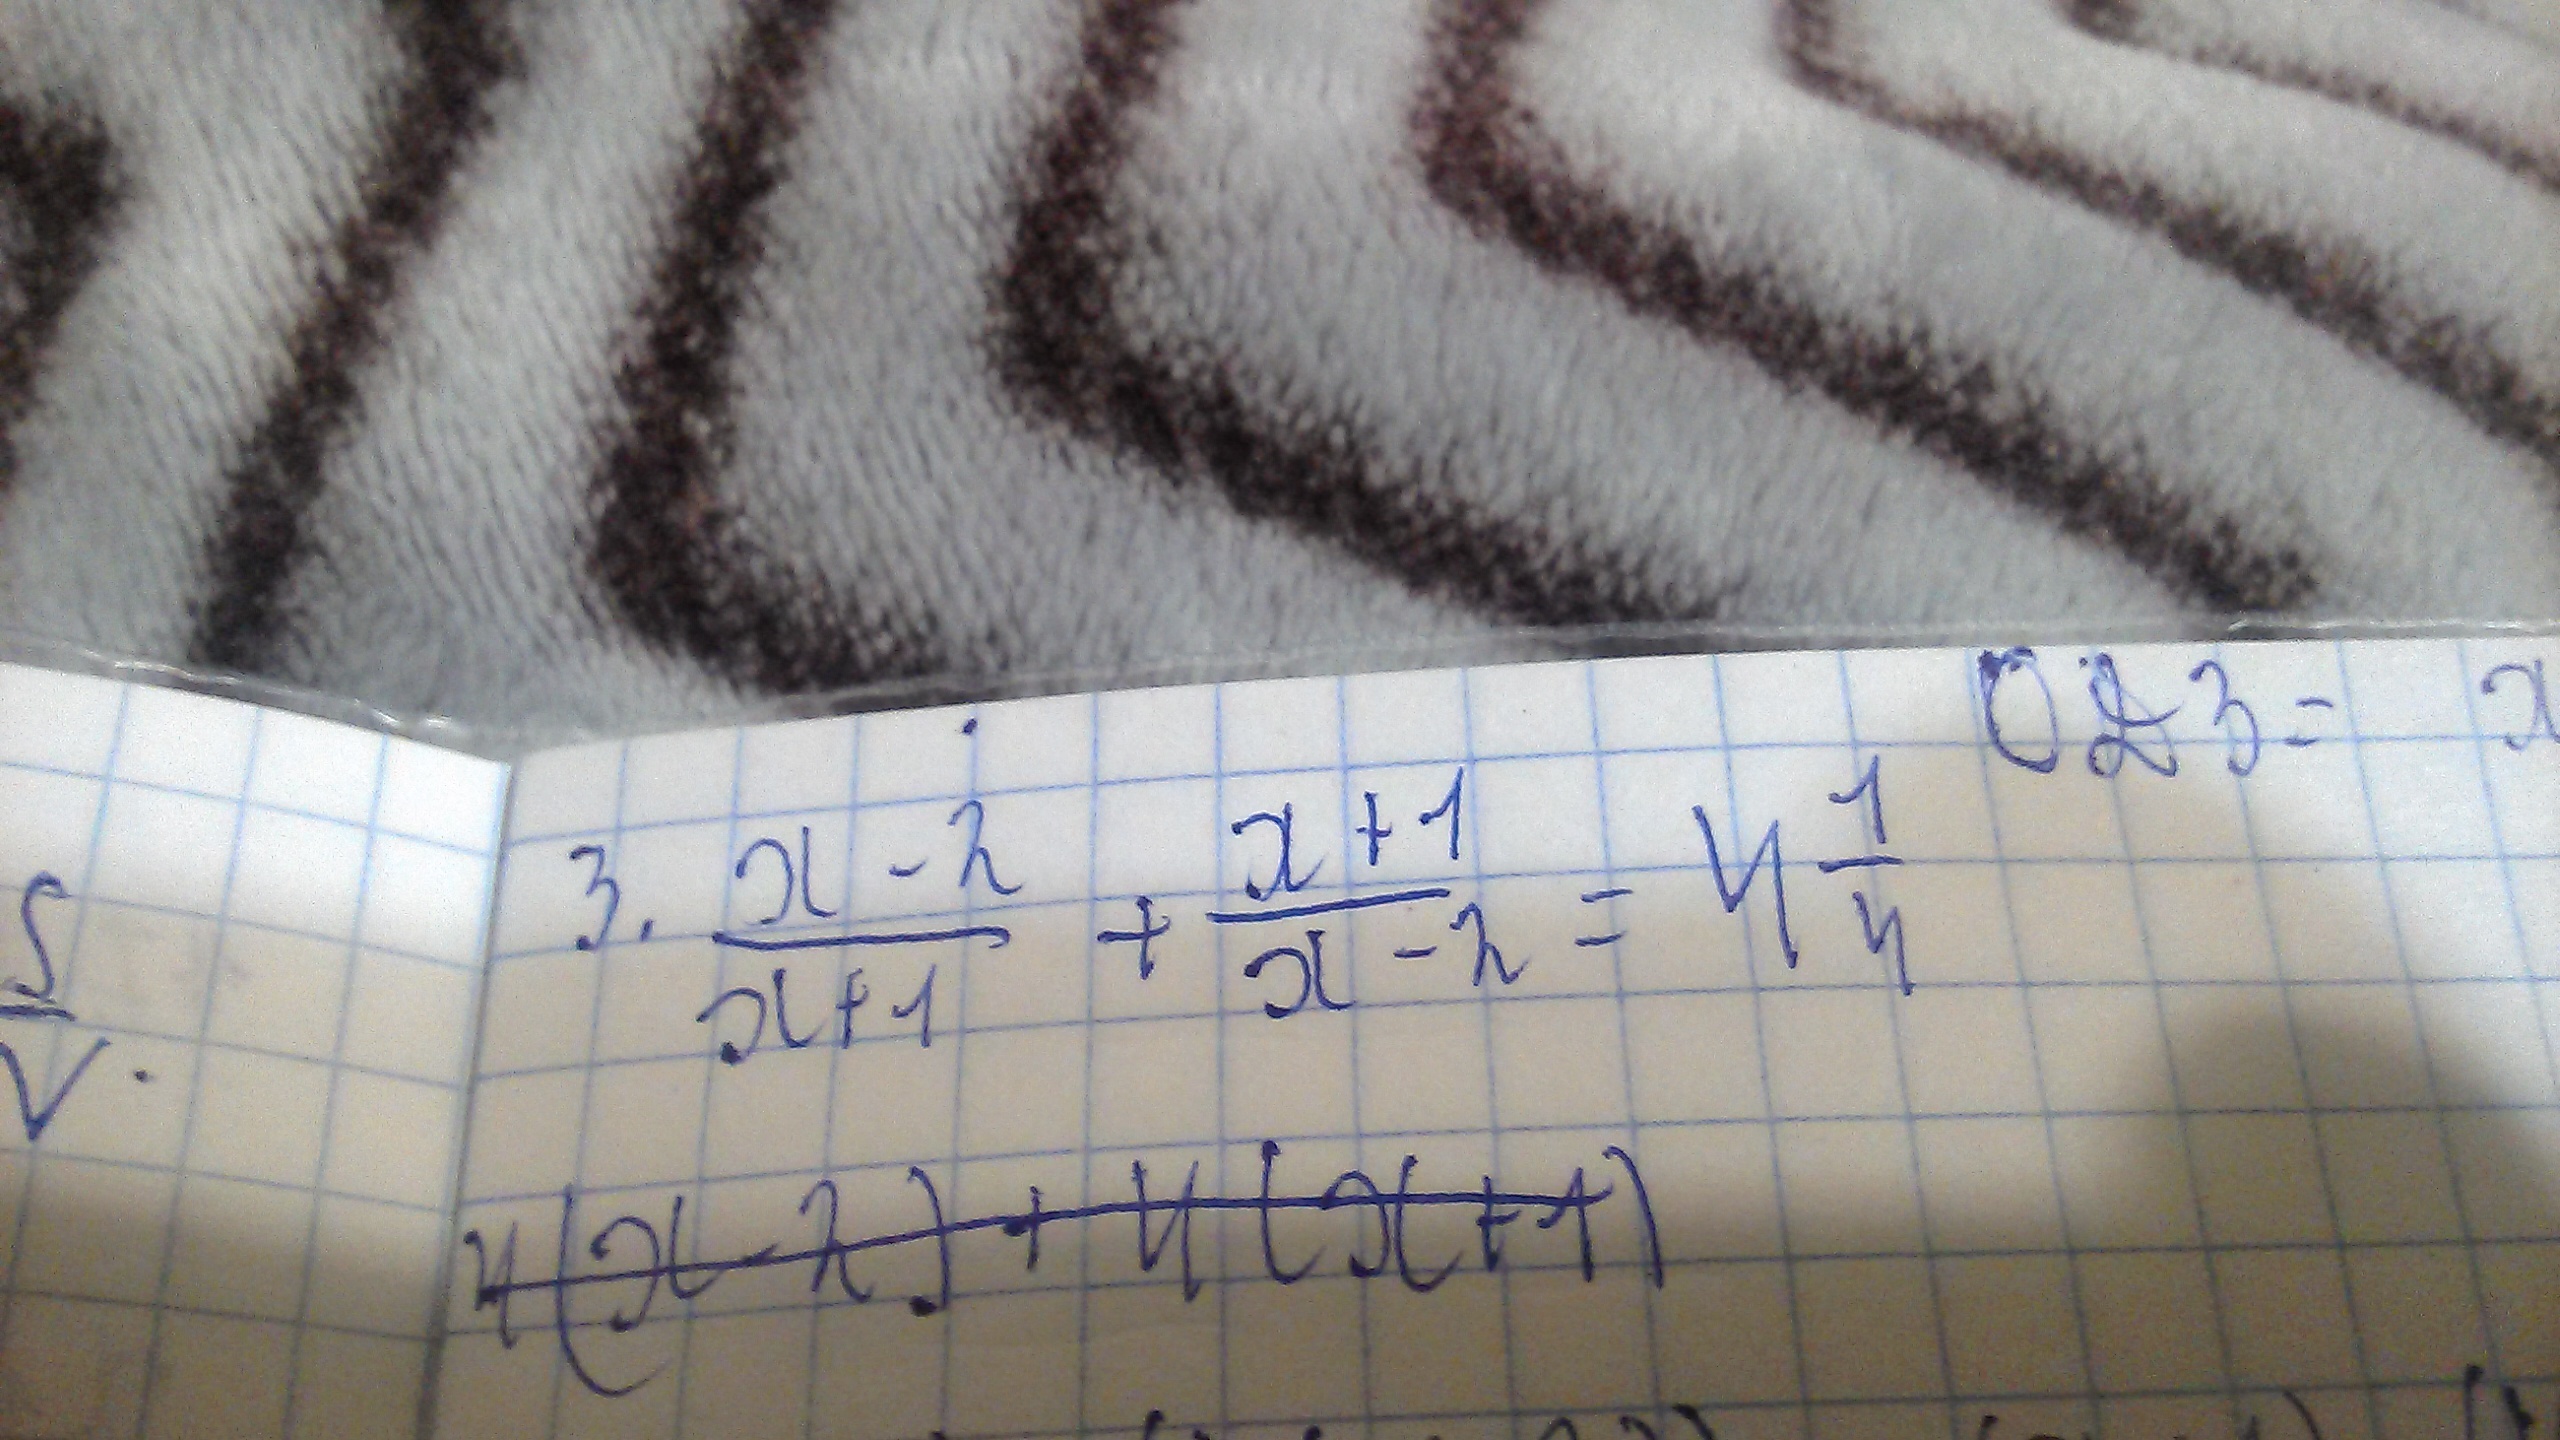 ОДЗ = x
3. \frac{x-2}{x+1} + \frac{x+1}{x-2} = 4\frac{1}{4}
\frac{S}{V}.
4(x-2) + 4(x+1)